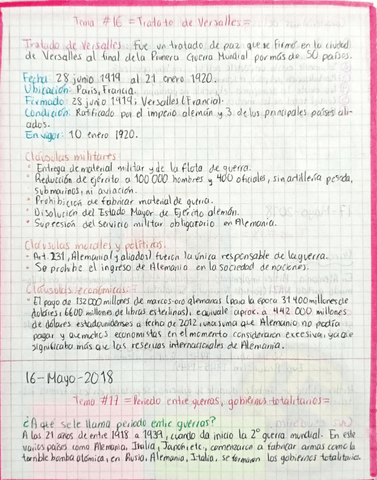 Tema #16 = Tratato de Versalles =
Tratado de Versalles: Fue un tratado de paz que se firmó en la ciudad
de Versalles al final de la Primera Guerra Mundial por más de 50 países.
Fecha: 28 junio 1919 al 21 enero 1920.
Ubicación: París, Francia.
Firmado: 28 junio 1919, Versalles (Francia).
Condición: Ratificado por el imperio alemán y 3 de los principales países ali-
ados.
En vigor: 10 enero 1920.
Cláusulas militares
· Entrega de material militar y de la flota de guerra.
· Reducción de ejército a 100 000 hombres y 400 oficiales, sin artillería pesada,
submarinos, ni aviación.
· Prohibición de fabricar material de guerra.
· Disolución del Estado Mayor de Ejército alemán.
· Supresión del servicio militar obligatorio en Alemania.
Cláusulas morales y políticas.
· Art. 231, Alemania (y aliados) fueron la única responsable de la guerra.
· Se prohibe el ingreso de Alemania en la sociedad de naciones.
Cláusulas económicas:
· El pago de 132000 millones de marcos-oro alemanes (para la época 31 400 millones de
dólares, 6600 millones de libras esterlinas), equivale aprox. a 442 000 millones
de dólares estadounidenses a fecha de 2012, una suma que Alemania no podría
pagar y que muchos economistas en el momento consideraron excesiva, ya que
significaba más que las reservas internacionales de Alemania.
16-Mayo-2018
Tema #17 = Periodo entre guerras, gobiernos totalitarios =
¿A qué se le llama periodo entre guerras?
A los 21 años de entre 1918 a 1939, cuando da inicio la 2° guerra mundial. En este
varios países como Alemania, Italia, Japón, etc., comenzaron a fabricar armas como la
terrible bomba atómica, en Rusia, Alemania, Italia, se formaron los gobiernos totalitarios.